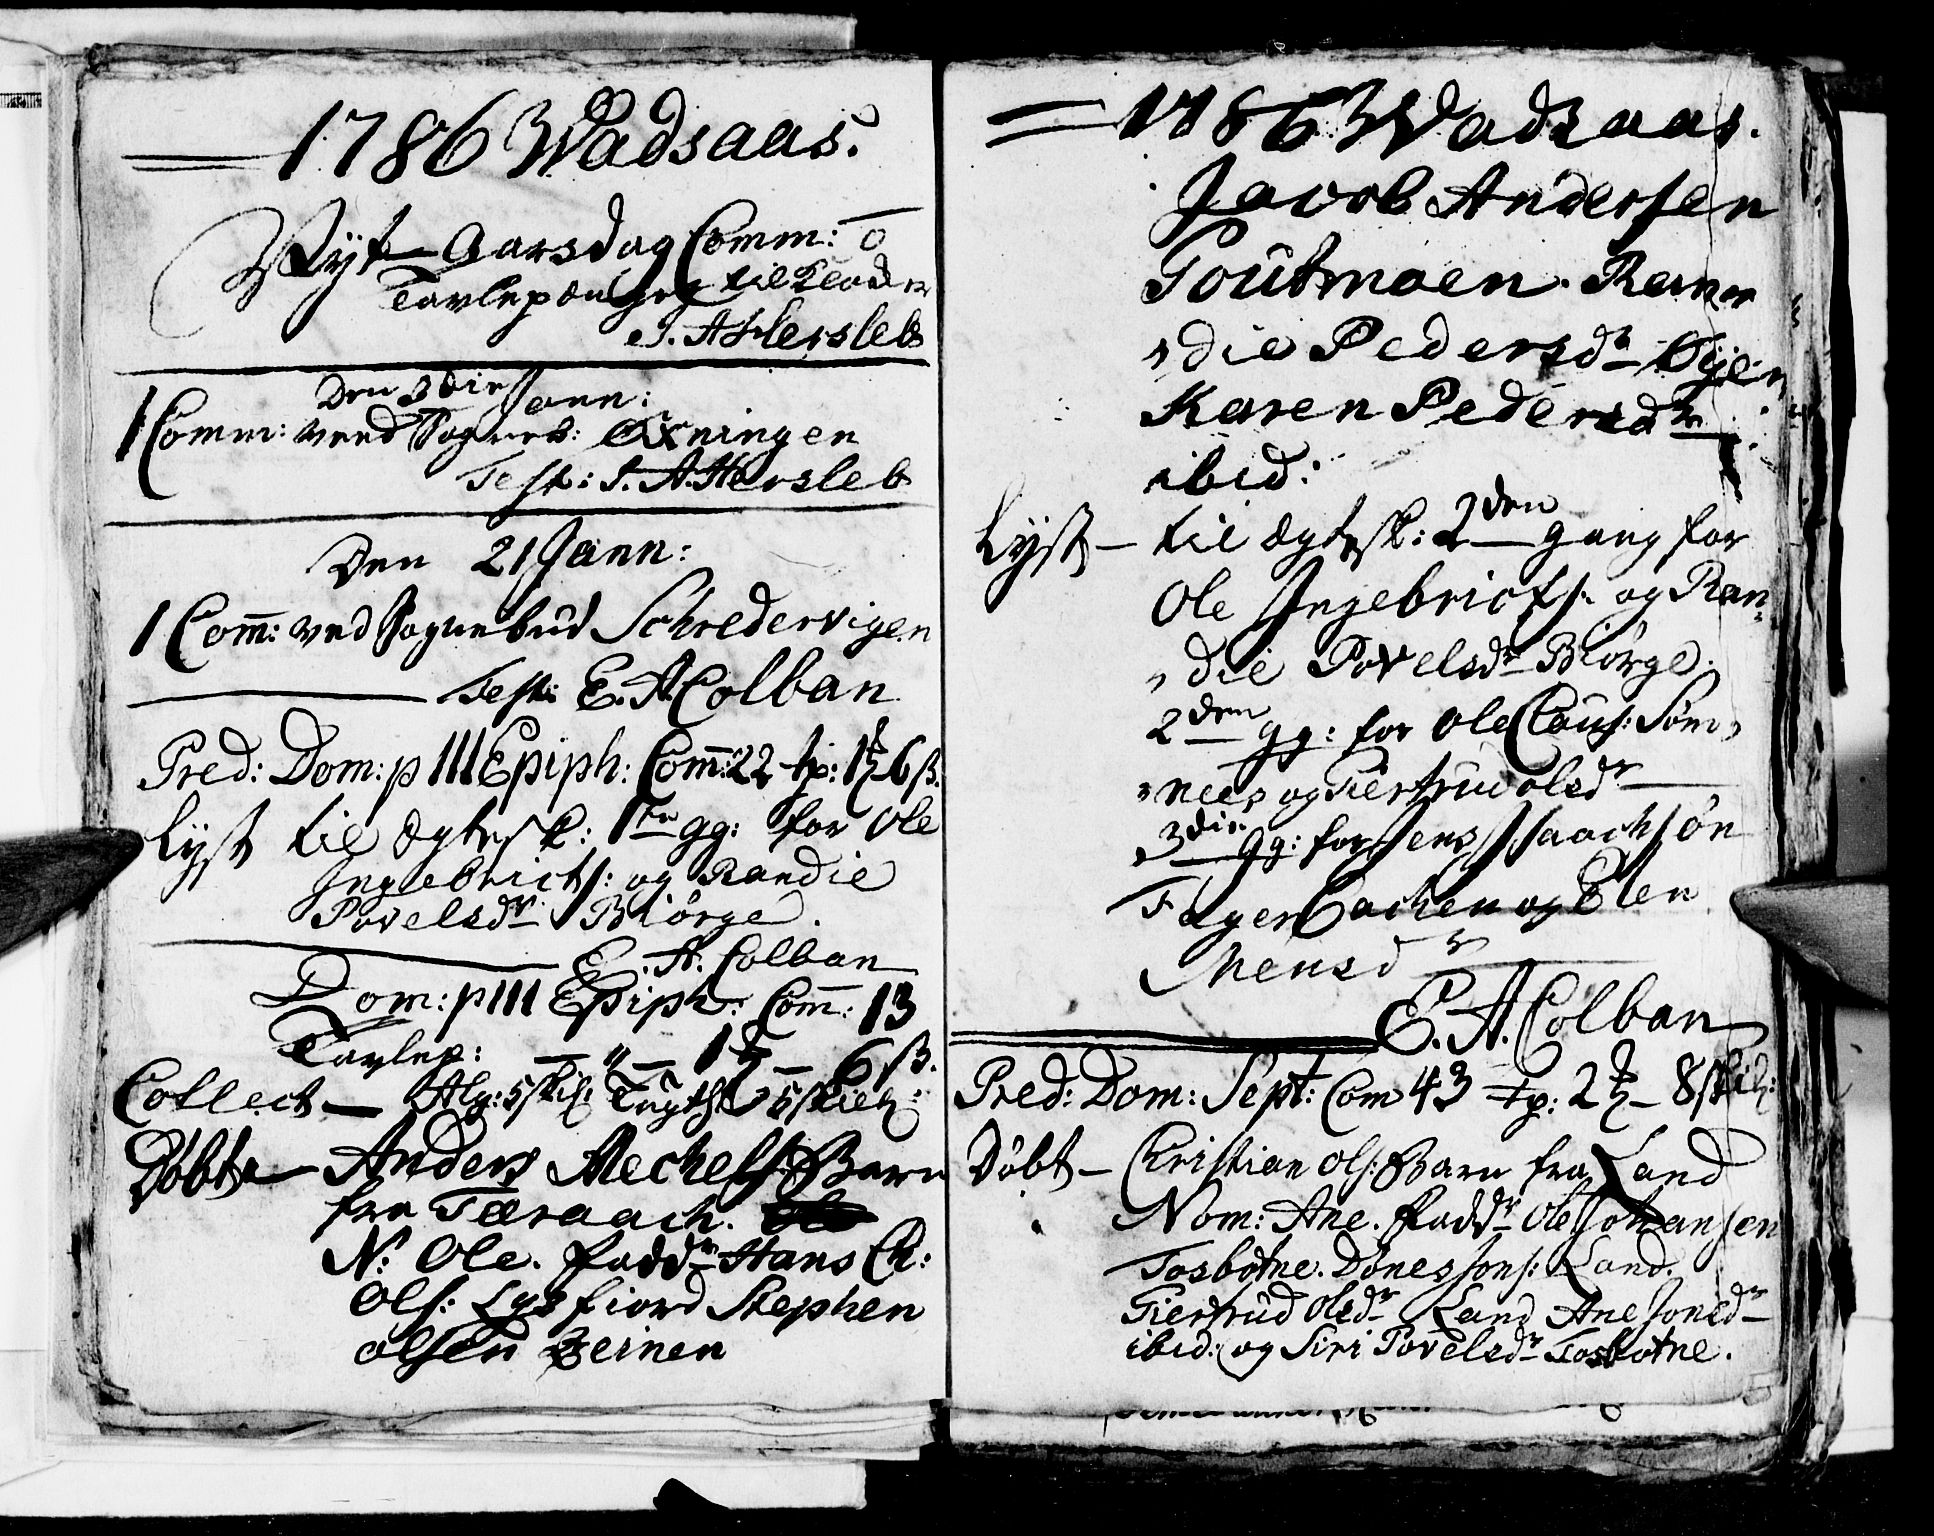 1786 Wadsaas.
Nyt Aarsdag Comm: 0
Tavlepenge til Kloder
S. A Hersleb
Den 3die Jann:
1 Comm: ved Sogneb: Øxningen
Test: S. A. Hersleb
Den 21 Jann:
1 Com̄: ved Sognebud Schredervigen
Test: E. A. Colban
Pred: Dom: p III Epiph: Com̄: 22 tp: 1 6 ß.
Lyst til Ægtesk: 1te gg: for Ole
Ingebricts: og Randie
Povelsdr Biørge.
E. A. Colban
Dom: p III Epiph: Com̄: 13
Tavlep: — " — 1 — 6 ß.
Collect — Alg: 5 skil: Tugth 5 skil:
Døbte — Anders Mechels: Barn
fra Tæraach.
N: Ole. Fadd: Hans Ch:
Ols: Lysfiord Stephen
Olsen Beinen
= 1786 Wadsaas.
Jacob Andersen
Toutmoen. Ran
die Pedersdr Øyen
Karen Pedersdr
ibid:
Lyst — til Ægtesk: 2den gang for
Ole Ingebricts: og Ran-
die Povelsdr Biørge.
2den gg: for Ole Claus: Søm-
nes og Giertrud Olsdr
3die gg: for Jens Isaachsøn
Fagerbachen og Elen
Mensdr
E. A. Colban
Pred: Dom: Sept: Com 43 tp: 2 — 8 skil:
Døbt — Christian Ols: Barn fra Land
Nom: Ane. Faddr Ole Johansen
Tosbotne. Dønes Jons: Land.
Giertrud Olsdr Land Ane Jonsdr
ibid: og Siri Povelsdr Tosbotne.